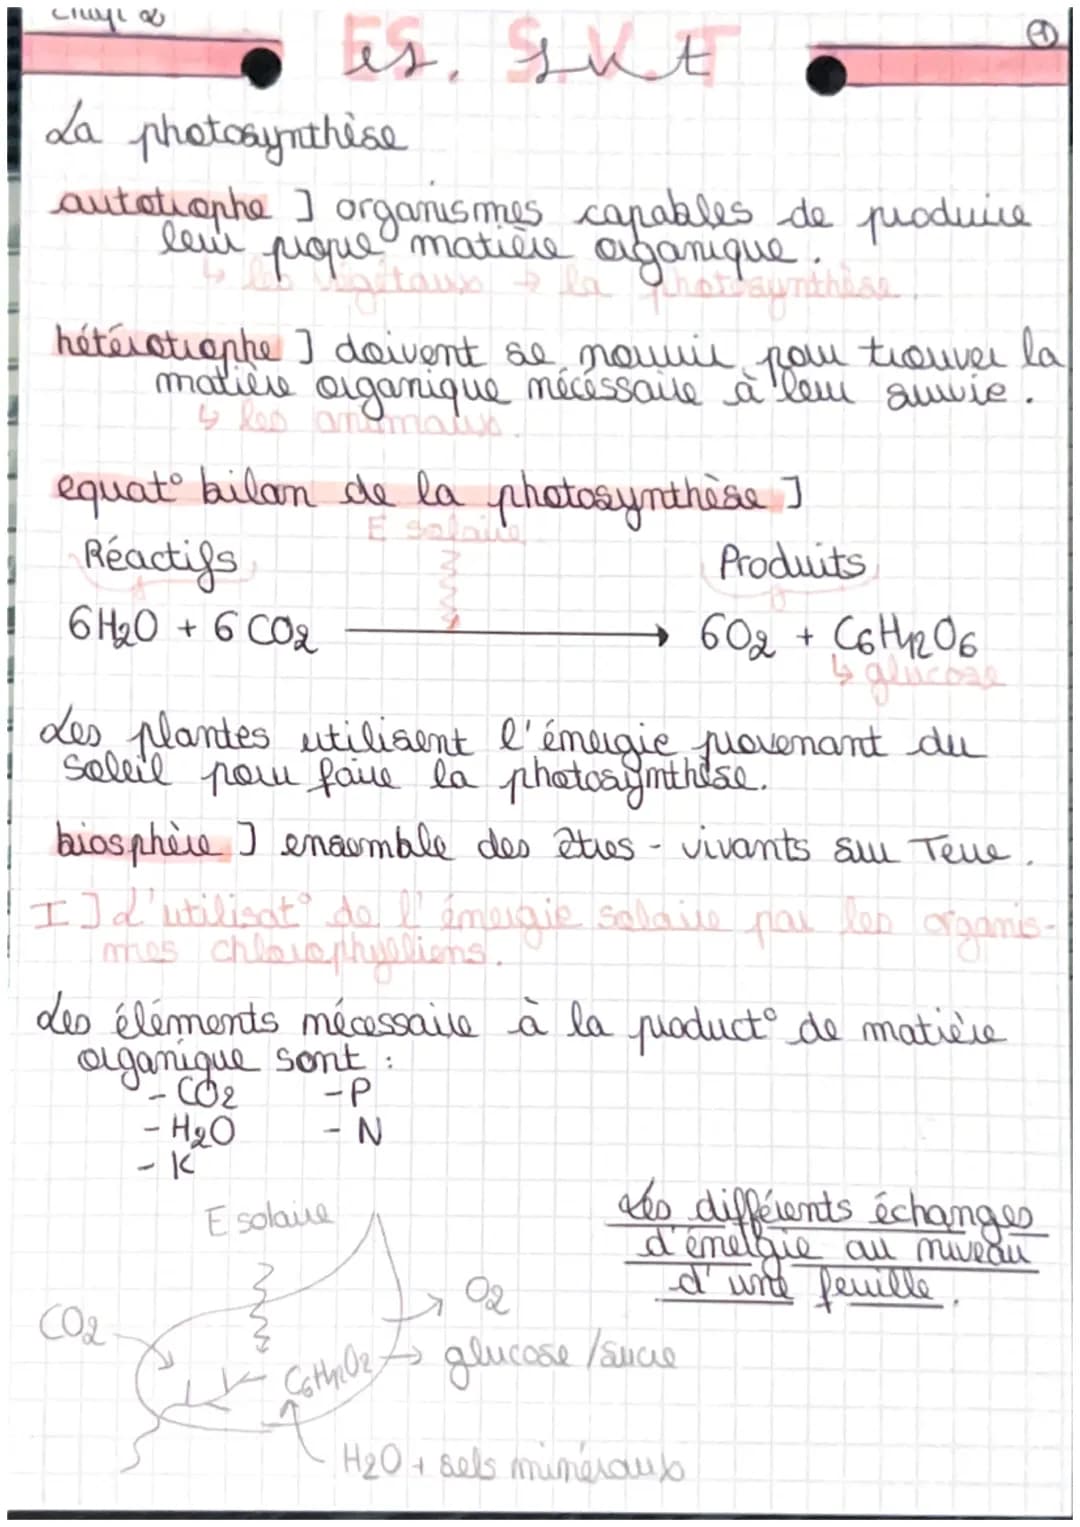 Chap 2
ES. S.V.T
es. svt
1
La photosynthèse
autotrophe ] organismes capables de produire
leur propre matière organique.
↳ les végétaux → la photosynthèse.
hétérotrophe ] doivent se nourrir pour trouver la
matière organique nécéssaire à leur survie.
↳ les animaux.
equat° bilan de la photosynthèse ]
E solaire
Réactifs
Produits
6H2O + 6 CO2 → 6O2 + C6H12O6
↳ glucose
Les plantes utilisent l'énergie provenant du
soleil pour faire la photosynthèse.
biosphère ] ensemble des êtres - vivants sur Terre.
I ] L'utilisat° de l'énergie solaire par les organis-
mes chlorophylliens.
Les éléments nécessaire à la product° de matière
organique sont :
- CO2 - P
- H2O - N
- K
E solaire
Les différents échanges
d'énergie au niveau
d'une feuille.
O2
CO2
glucose / sucre
C6H12O2
H2O + sels minéraux